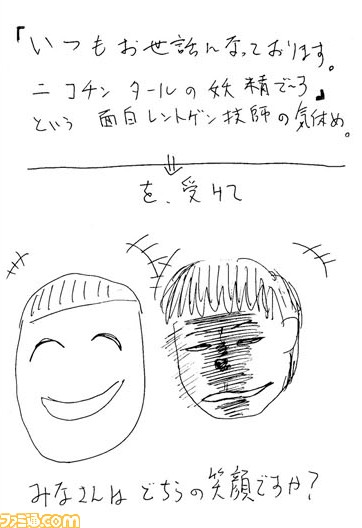 「いつもお世話んなっております。
ニコチン タールの妖精で〜ろ」
という 面白レントゲン技師の気休め。
を、受けて
みなさんは どちらの笑顔ですか?
ファミ通.com